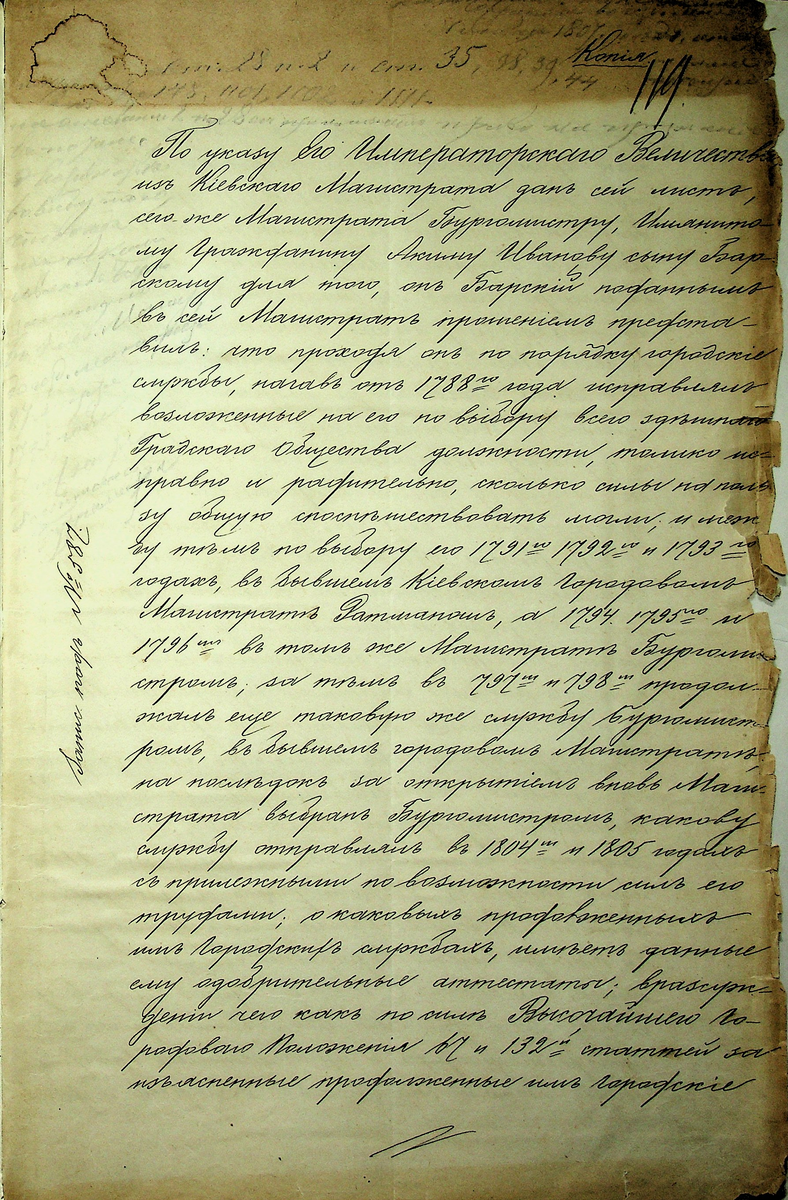 ст. 28 п. 2 и ст. 35, 38, 39, 44
Копія
По указу Его Императорскаго Величества
изъ Кіевскаго Магистрата данъ сей листъ,
сего-же Магистрата Бургомистру, Имянито-
му Гражданину Акиму Иванову сыну Бар-
скому для того, онъ Барскій поданнымъ
въ сей Магистратъ прошеніемъ предста-
вилъ: что проходя онъ по порядку городскіе
службы, начавъ отъ 1788го года исправлялъ
возложенные на его по выбору всего здѣшняго
Градскаго Общества должности, толико ис-
правно и радительно, сколько силы на поль
зу общую споспѣшествовать могли, и меж
ду тѣмъ по выбору его 1791го 1792го и 1793го
годахъ, въ бывшемъ Кіевскомъ Городовомъ
Магистратѣ Ратманомъ, а 1794. 1795го и
1796мъ въ томъ же Магистратѣ Бургоми
стромъ; за тѣмъ въ 797мъ и 798мъ продол-
жалъ еще таковую же службу Бургомист-
ромъ, въ бывшемъ городовомъ Магистратѣ,
на послѣдокъ за открытіемъ вновь Маги-
страта выбранъ Бургомистромъ, какову
службу отправлялъ въ 1804мъ и 1805 годахъ
съ прилежными по возможности силъ его
трудами; о каковыхъ продолженныхъ
имъ Городскихъ службахъ, имѣетъ данные
ему одобрительные аттестаты; вразсуж-
деніи чего какъ по силѣ Высочайшего Го-
родоваго Положенія 67 и 132й статтей за
изъясненные продолженные имъ Городскіе
Запис. подъ № 785